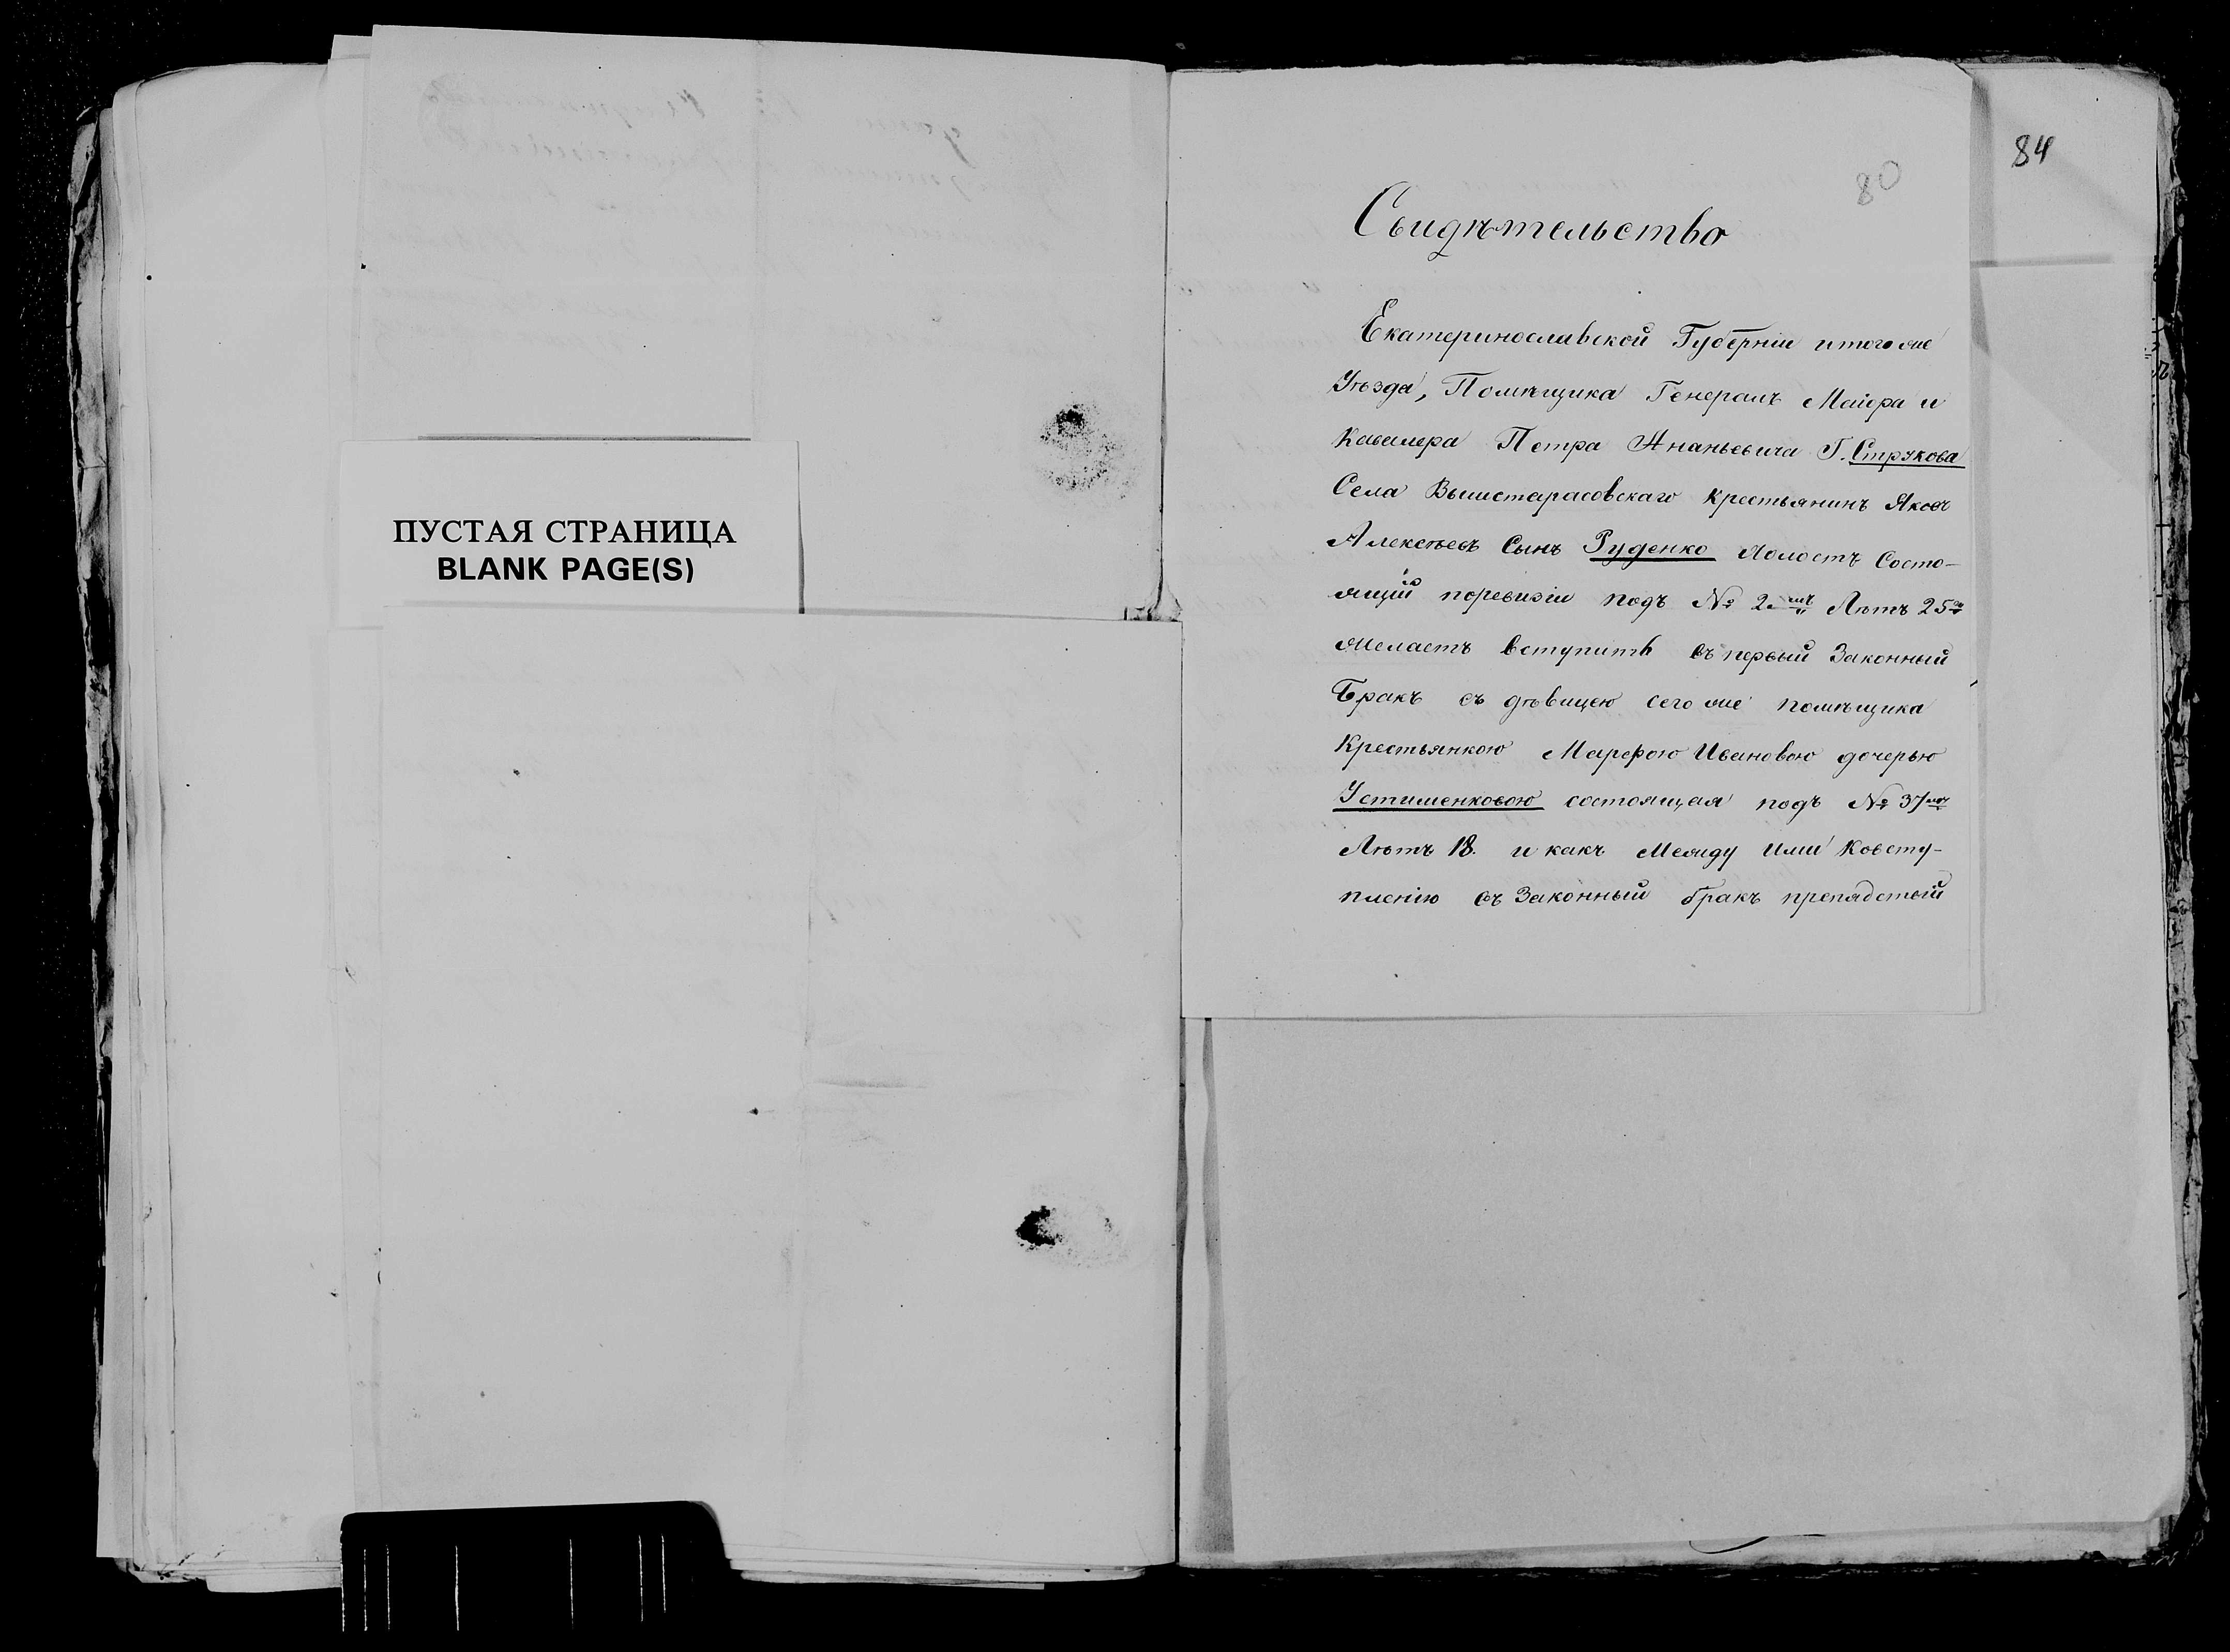 84
80
Свидѣтельство
Екатеринославской Губерніи итогоже
Уѣзда, Помѣщика Генералъ Маіора и
Кавалера Петра Ананьевича Г. Струкова
Села Вышетарасовскаго крестьянинъ Яковъ
Алексѣевъ Сынъ Руденко холостъ Состо-
ящій поревизіи подъ № 2мъ Лѣтъ 25
Желаетъ вступить въ первый Законный
Бракъ съ дѣвицею сего же помѣщика
Крестьянкою Марфою Ивановою дочерью
Устименковою состоящая подъ № 37мъ
Лѣтъ 18. и какъ Между ими Ковсту-
пленію въ Законный бракъ препядствій
ПУСТАЯ СТРАНИЦА
BLANK PAGE(S)